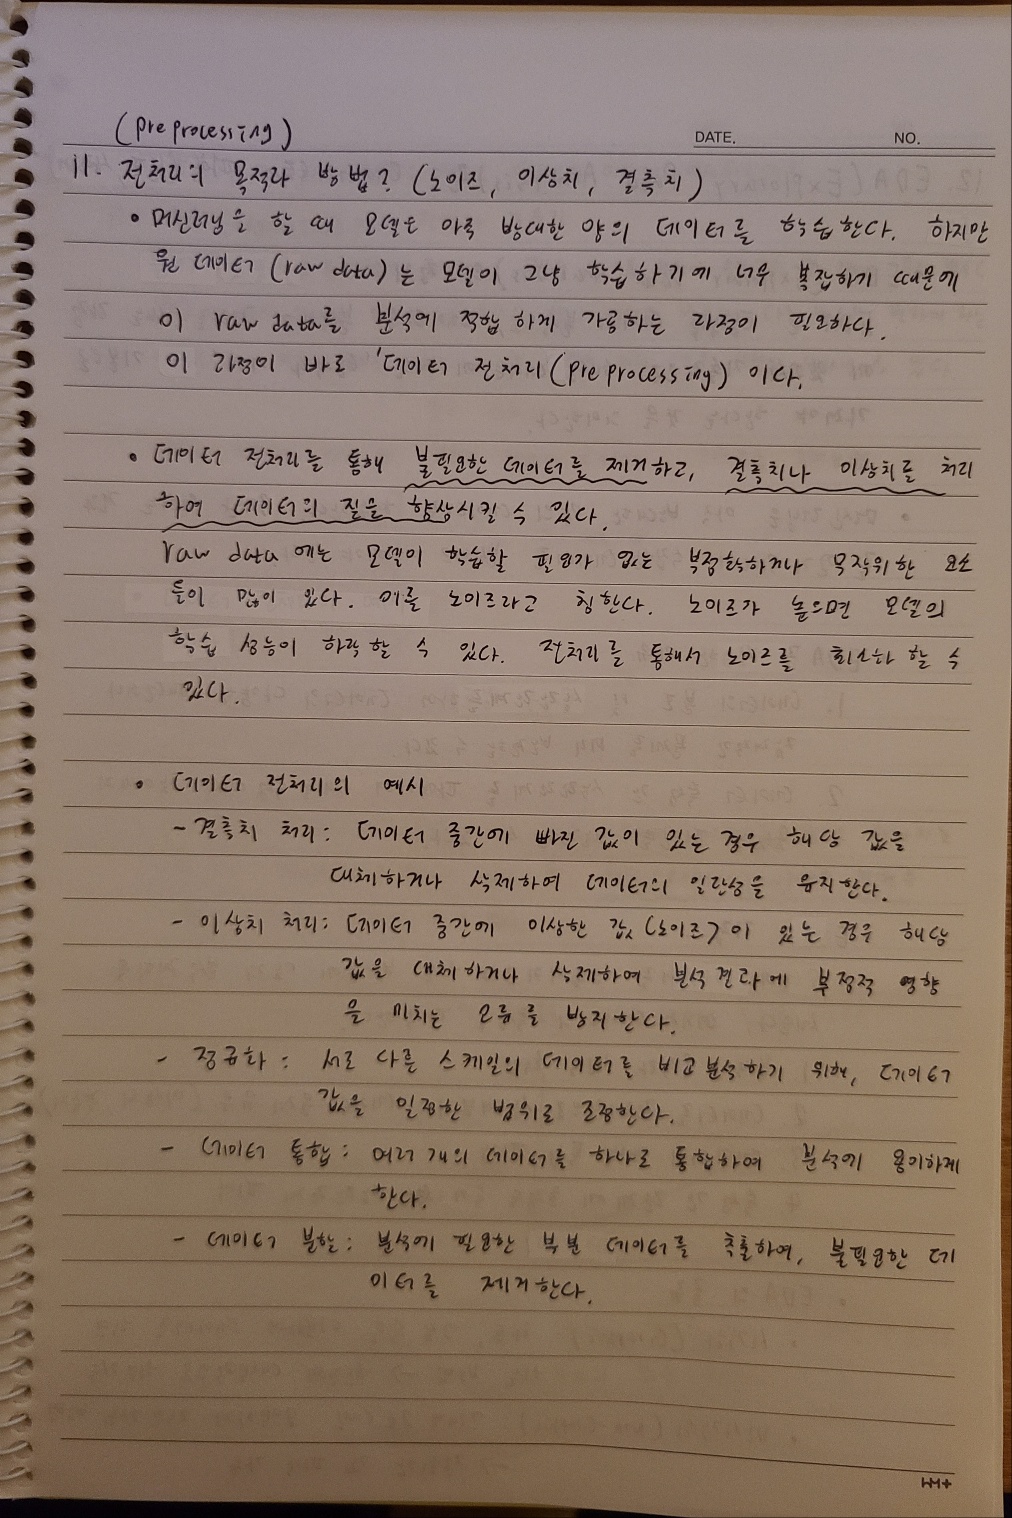 (preprocessing)
DATE. NO.
11. 전처리의 목적과 방법? (노이즈, 이상치, 결측치)
• 머신러닝을 할 때 모델은 아주 방대한 양의 데이터를 학습한다. 하지만
원 데이터 (raw data)는 모델이 그냥 학습하기에 너무 복잡하기 때문에
이 raw data를 분석에 적합하게 가공하는 과정이 필요하다.
이 과정이 바로 '데이터 전처리(preprocessing) 이다.
• 데이터 전처리를 통해 불필요한 데이터를 제거하고, 결측치나 이상치를 처리
하여 데이터의 질을 향상시킬 수 있다.
raw data에는 모델이 학습할 필요가 없는 부정확하거나 무작위한 요소
들이 많이 있다. 이를 노이즈라고 칭한다. 노이즈가 높으면 모델의
학습 성능이 하락할 수 있다. 전처리를 통해서 노이즈를 최소화 할 수
있다.
• 데이터 전처리의 예시
- 결측치 처리: 데이터 중간에 빠진 값이 있는 경우 해당 값을
대체하거나 삭제하여 데이터의 일관성을 유지한다.
- 이상치 처리: 데이터 중간에 이상한 값(노이즈)이 있는 경우 해당
값을 대체하거나 삭제하여 분석결과에 부정적 영향
을 미치는 오류를 방지한다.
- 정규화: 서로 다른 스케일의 데이터를 비교분석하기 위해, 데이터
값을 일정한 범위로 조정한다.
- 데이터 통합: 여러개의 데이터를 하나로 통합하여 분석에 용이하게
한다.
- 데이터 분할: 분석에 필요한 부분 데이터를 추출하여, 불필요한 데
이터를 제거한다.